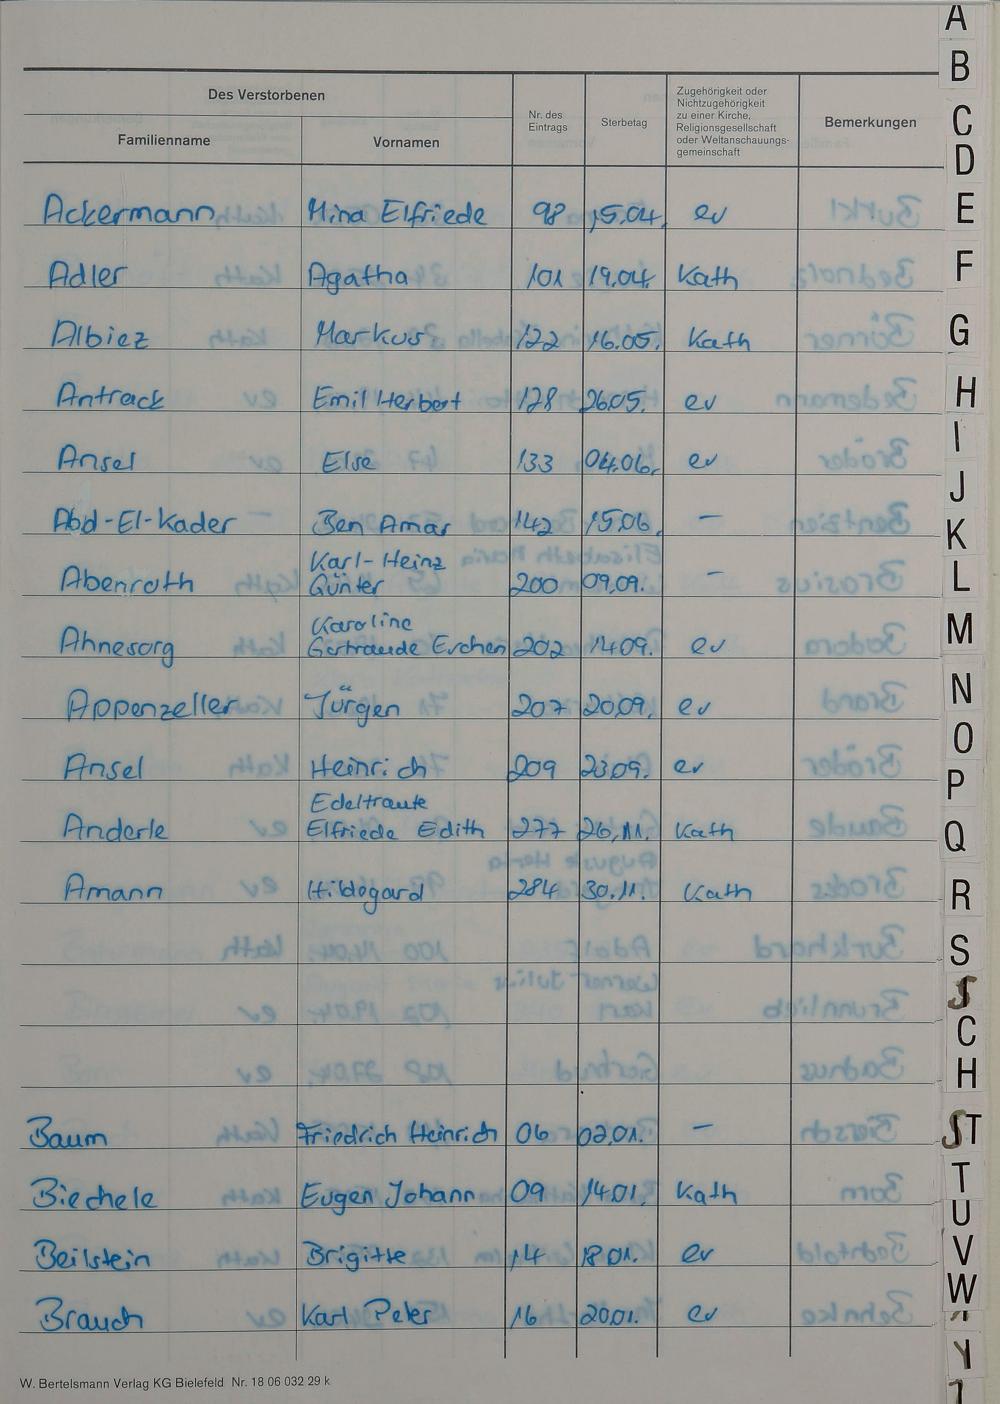 Des Verstorbenen
Familienname
Vornamen
Nr. des
Eintrags
Sterbetag
Zugehörigkeit oder
Nichtzugehörigkeit
zu einer Kirche,
Religionsgesellschaft
oder Weltanschauungs-
gemeinschaft
Bemerkungen
Ackermann Mina Elfriede 98 15.04. ev
Adler Agatha 101 19.04. Kath
Albiez Markus 122 16.05. Kath
Antrack Emil Herbert 128 26.05. ev
Ansel Else 133 04.06. ev
Abd-El-Kader Ben Amar 142 15.06. –
Karl-Heinz
Abenroth Günter 200 09.09. –
Karoline
Ahnesorg Gertraude Evchen 202 14.09. ev
Appenzeller Jürgen 207 20.09. ev
Ansel Heinrich 209 23.09. ev
Edeltraute
Anderle Elfriede Edith 277 26.11. Kath
Amann Hildegard 284 30.11. Kath
Baum Friedrich Heinrich 06 02.01. –
Biechele Eugen Johann 09 14.01. Kath
Beilstein Brigitte 14 18.01. ev
Brauch Karl Peter 16 20.01. ev
W. Bertelsmann Verlag KG Bielefeld Nr. 18 06 032 29 k
A
B
C
D
E
F
G
H
I
J
K
L
M
N
O
P
Q
R
S
S
C
H
ST
T
U
V
W
Y